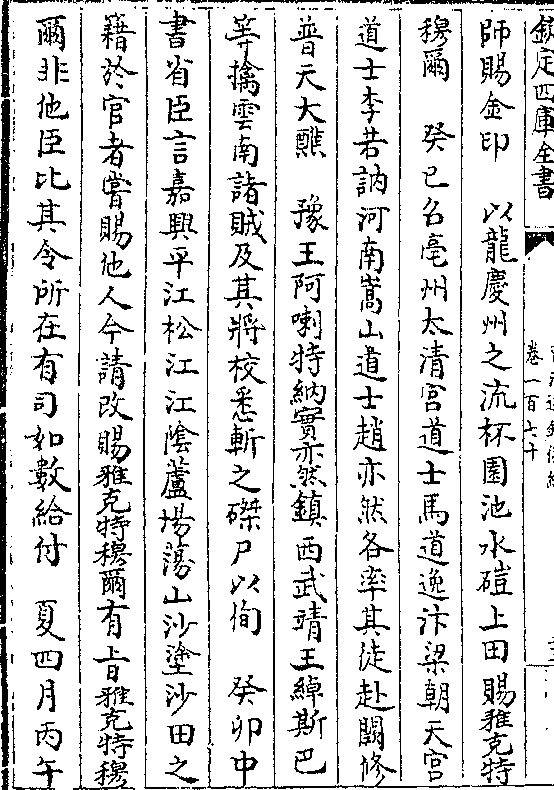 欽定四庫全書
卷一百七十
師賜金印　以龍慶州之流杯園池水磑土田賜雅克特
穆爾　癸巳召亳州太清宮道士馬道逸汴梁朝天宮
道士李若訥河南嵩山道士趙亦然各率其徒赴闕修
普天大醮　豫王阿喇特納實亦然鎮西武靖王綽斯巴
等擒雲南諸賊及其將校悉斬之磔尸以徇　癸卯中
書省臣言嘉興平江松江江陰蘆場蕩山沙塗沙田之
籍於官者嘗賜他人今請改賜雅克特穆爾有㫖雅克特穆
爾非他臣比其令所在有司如數給付　夏四月丙午